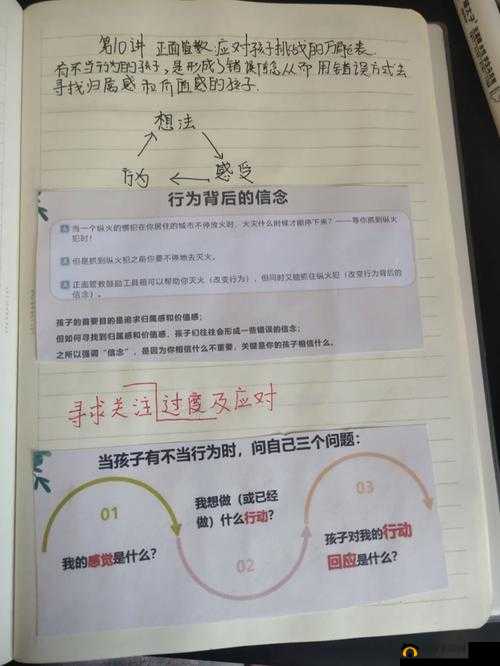 第10讲 正面管教.应对孩子挑战的万能表
有不当行为的孩子,是形成了错误信念从而用错误方式去
寻找归属感和价值感的孩子.
想法
行为
感受
行为背后的信念
当一个纵火的惯犯在你居住的城市不停放火时,大灾什么时候才能停下来?——等你抓到纵火
犯时!
但是抓到纵火犯之前你要不停地去灭火。
正面管教鼓励工具箱可以帮助你灭火(改变行为),但同时又能抓住纵火犯(改变行为背后的
信念)。
孩子的首要目的是追求归属感和价值感;
但如何寻找到归属感和价值感、孩子们往往会形成一些错误的信念;
之所以强调“信念”,是因为你相信什么不重要,关键是你的孩子相信什么。
寻求关注过度及应对
当孩子有不当行为时,问自己三个问题:
01
我的感觉是什么?
我想做(或已经
做)什么行动?
02
03
孩子对我的行动
回应是什么?